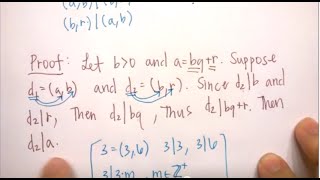 (a,b) | (b,r)
(b,r) | (a,b)
Proof: Let b>0 and a=bq+r. Suppose
d₁=(a,b) and d₂=(b,r). Since d₂|b and
d₂|r, Then d₂|bq, Thus d₂|bq+r. Then
d₂|a.
3=(3,6) 3|3, 3|6
3|3·m m∈ℤ⁺